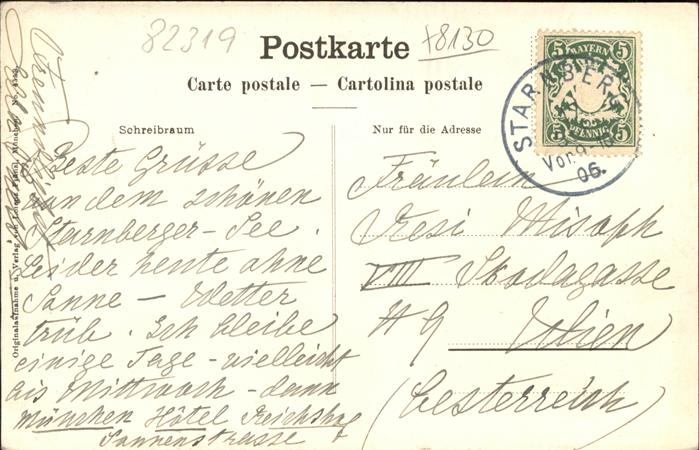 82319
78130
Postkarte
Carte postale — Cartolina postale
Schreibraum
Nur für die Adresse
BAYERN
5 5
5 5
PFENNIG
STARNBERG
Vor. 9-10
06.
Beste Grüsse
von dem schönen
Starnberger-See.
Leider heute ohne
Sonne — Wetter
trüb. Ich bleibe
einige Tage - vielleicht
bis Mittwoch - dann
München Hôtel Reichshof
Sonnenstrasse
Fräulein
Resi Misoph
VIII Skodagasse
# 9 Wien
(Oesterreich)
Originalaufnahme u. Verlag von München No.